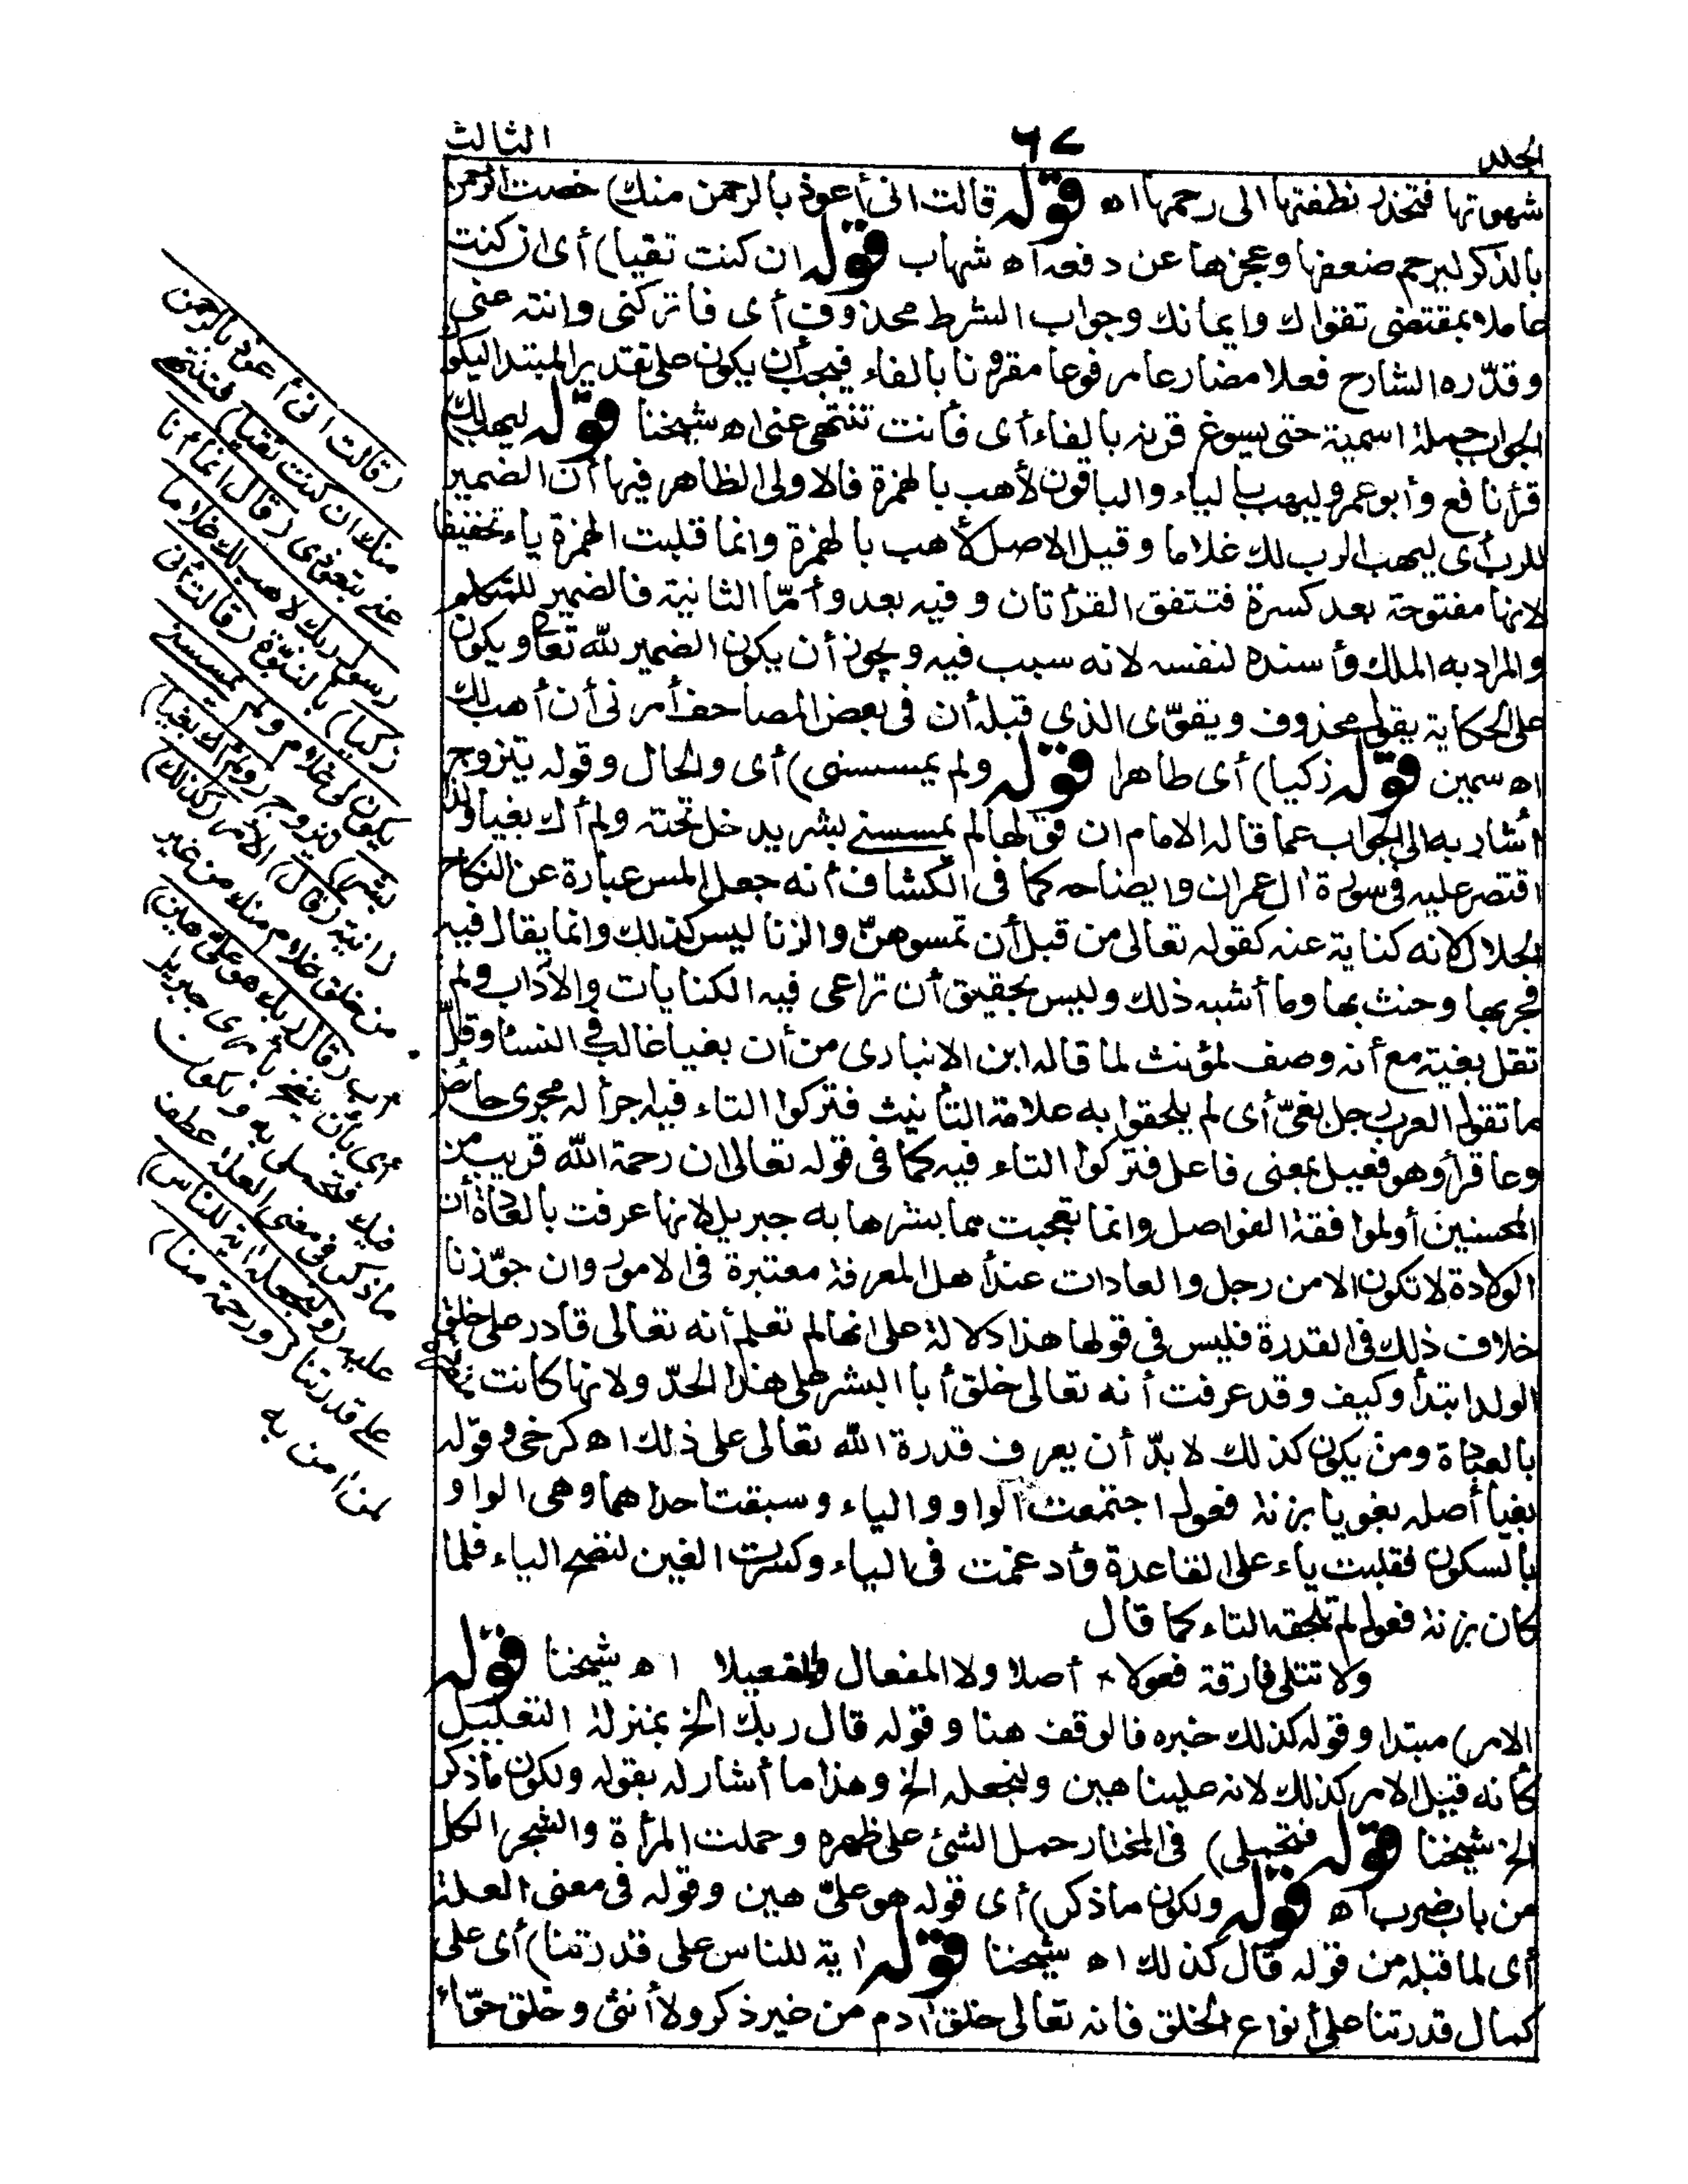 الجلد ٦٧ الثالث
شهوتها فتحذر نطفتها الى رحمها اه قوله قالت انى أعوذ بالرحمن منك) خصت الرحمن
بالذكر ليرحم ضعفها وعجزها عن دفعه اه شهاب قوله ان كنت تقيا) أى ان كنت
عاملا بمقتضى تقواك وايمانك وجواب الشرط محذوف أى فاتركنى وانته عنى
وقدّره الشارح فعلا مضارعا مرفوعا مقرونا بالفاء فيجب أن يكون على تقدير المبتدا ليكون
الجواب جملة اسمية حتى يسوغ قرنه بالفاء أى فأنت تنتهى عنى اه شيخنا قوله ليهب لك)
قرأ نافع وأبو عمرو ليهب بالياء والباقون لأهب بالهمزة فالاولى الظاهر فيها أن الضمير
للرب أى ليهب الرب لك غلاما وقيل الاصل لأهب بالهمزة وانما قلبت الهمزة ياء تخفيفا
لانها مفتوحة بعد كسرة فتتفق القرأتان وفيه بعد وأمّا الثانية فالضمير للمتكلم
والمراد به الملك وأسنده لنفسه لانه سبب فيه ويجوز أن يكون الضمير لله تعالى ويكون
على الحكاية بقول محذوف ويقوّى الذى قبله أن فى بعض المصاحف أمرنى أن أهب لك
اه سمين قوله زكيا) أى طاهرا قوله ولم يمسسنى) أى والحال وقوله يتزوج
أشار به الى الجواب عما قاله الامام ان قولها لم يمسسنے بشر يدخل تحته ولم أك بغيا ولذا
اقتصر عليه فى سورة ال عمران وايضاحه كما فى الكشاف أنه جعل المس عبارة عن النكاح
الحلال لانه كناية عنه كقوله تعالى من قبل أن تمسوهنّ والزنا ليس كذلك وانما يقال فيه
فجر بها وحنث بها وما أشبه ذلك وليس بحقيق أن تراعى فيه الكنايات والآداب ولم
تقل بغية مع أنه وصف لمؤنث لما قاله ابن الانبارى من أن بغيا غالب فى النساء وقلّ
ما تقول العرب رجل بغىّ أى لم يلحقوا به علامة التأنيث فتركوا التاء فيه اجرأ له مجرى حائض
وعاقر أو هو فعيل بمعنى فاعل فتركوا التاء فيه كما فى قوله تعالى ان رحمة الله قريب من
المحسنين أو لموافقة الفواصل وانما تعجبت مما بشرها به جبريل لانها عرفت بالعادة أن
الولادة لا تكون الا من رجل والعادات عند أهل المعرفة معتبرة فى الامور وان جوّزنا
خلاف ذلك فى القدرة فليس فى قولها هذا دلالة على انها لم تعلم أنه تعالى قادر على خلق
الولد ابتدأ وكيف وقد عرفت أنه تعالى خلق أبا البشر على هذا الحدّ ولانها كانت
بالعبادة ومن يكون كذلك لا بدّ أن يعرف قدرة الله تعالى على ذلك اه كرخى وقوله
بغيا أصله بغويا بزنة فعول اجتمعت الواو والياء وسبقت احداهما وهى الواو
بالسكون فقلبت ياء على القاعدة وأدغمت فى الياء وكسرت الغين لتصح الياء فلما
كان بزنة فعول لم تلحقه التاء كما قال
ولا تتلى فارقة فعولا * أصلا ولا المفعال والمفعيلا اه شيخنا قوله
الامر) مبتدا وقوله كذلك خبره فالوقف هنا وقوله قال ربك الخ بمنزلة التعليل
كأنه قيل الامر كذلك لانه علينا هين ولنجعله الخ وهذا ما أشار له بقوله ولكون ما ذكر
الخ شيخنا قوله فتحملى) فى المختار حمل الشئ على ظهره وحملت المرأة والشجر الكل
من باب ضرب اه قوله ولكون ما ذكر) أى قوله هو علىّ هين وقوله فى معنى العلة
أى لما قبله من قوله قال كذلك اه شيخنا قوله اية للناس على قدرتنا) أى على
كمال قدرتنا على أنواع الخلق فانه تعالى خلق ادم من غير ذكر ولا أنثى وخلق حوّاء
(قالت انى أعوذ بالرحمن
منك ان كنت تقيا) فتنتهے
عنے بتعوذى (قال انما أنا
رسول ربك لاهب لك غلاما
زكيا) بالنبوّة (قالت أنى
يكون لى غلام ولم يمسسنے
بشر) يتزوج (ولم أك بغيا)
زانية (قال) الامر (كذلك)
من خلق غلام منك من غير
أب (قال ربك هو علىّ هين)
أى بأن ينفخ بأمرى جبريل
فيك فتحملى به ولكون
ما ذكر فى معنى العلة عطف
عليه (ولنجعله اية للناس)
على قدرتنا (ورحمة منا)
لمن امن به